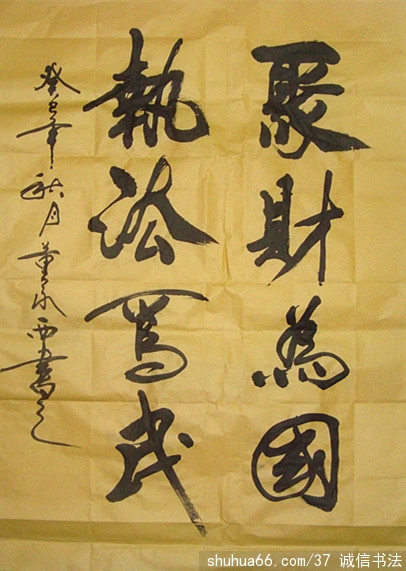 聚財為國
執法為民
癸巳年秋月董永西書之
shuhua66.com/37 诚信书法